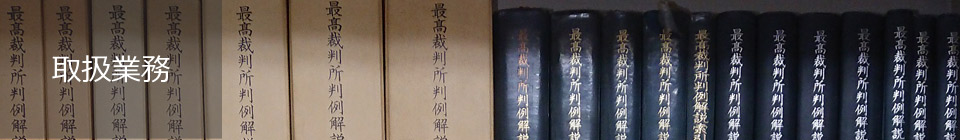 取扱業務
最高裁判所判例解説
最高裁判所判例解説
最高裁判所判例解説
最高裁判所判例解説
最高裁判所判例解説
最高裁判所判例解説
最高裁判所判例解説
最高裁判所判例解説
最高裁判所判例解説
最高裁判所判例解説
最高裁判所判例解説
最高裁判所判例解説索引
最高裁判所判例解説
最高裁判所判例解説
最高裁判所判例解説
最高裁判所判例解説
最高裁判所判例解説
最高裁判所判例解説
最高裁判所判例解説